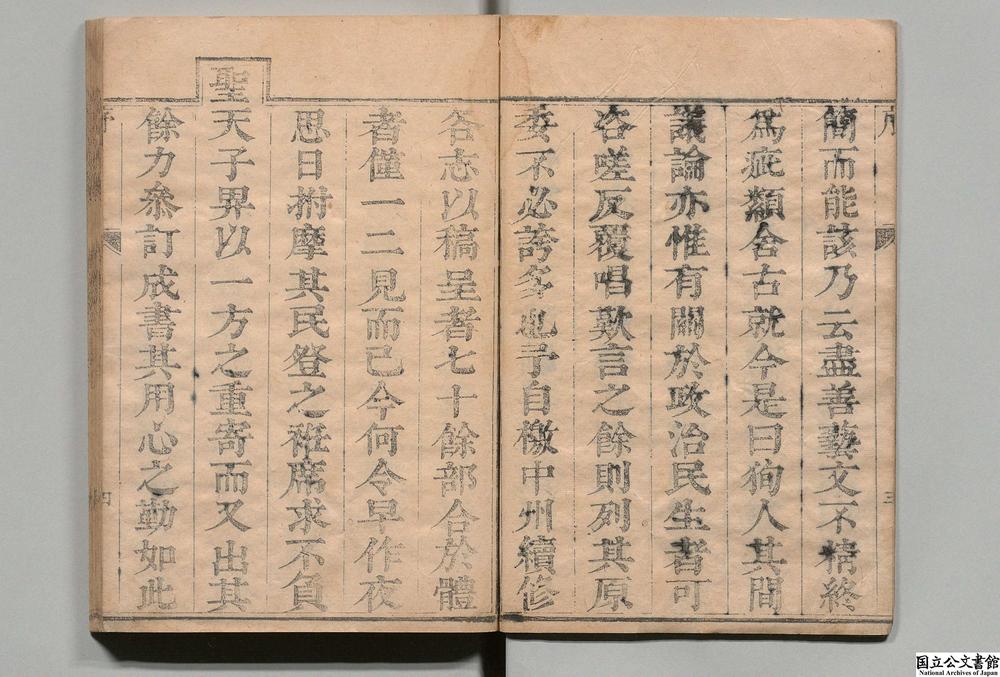 序
三
簡而能該乃云盡善藝文不精終
為疵類舍古就今是曰徇人其間
議論亦惟有關於政治民生者可
咨嗟反覆唱歎言之餘則列其原
委不必誇多也予自檄中州續修
各志以稿呈者七十餘部合於體
者僅一二見而已今何令早作夜
思日拊摩其民登之袵席求不負
聖
天子畀以一方之重寄而又出其
餘力叅訂成書其用心之勤如此
序
四
国立公文書館
National Archives of Japan